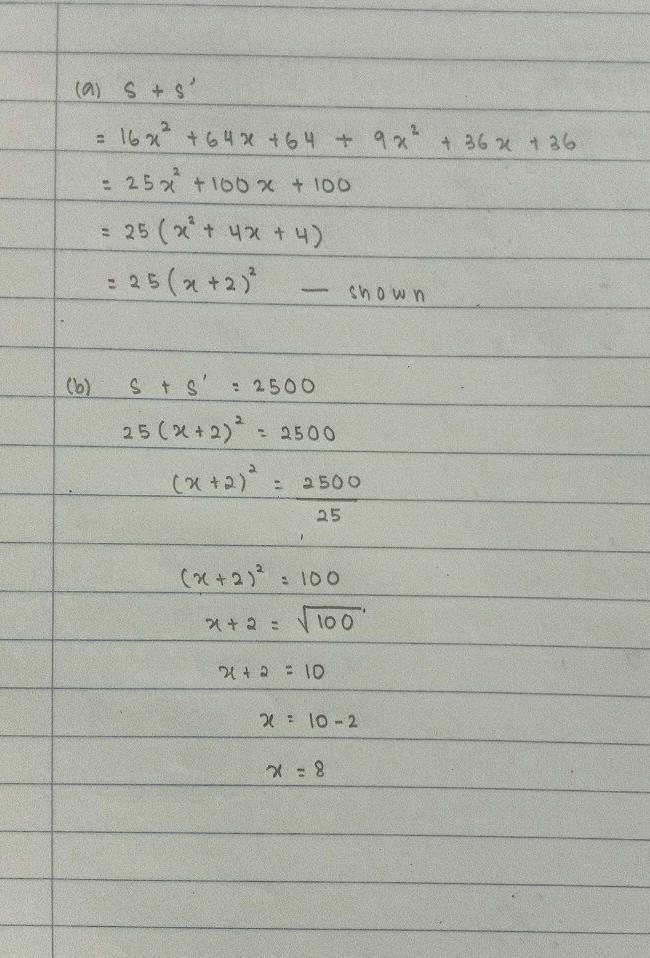 (a) S + S'
= 16x² + 64x + 64 + 9x² + 36x + 36
= 25x² + 100x + 100
= 25(x² + 4x + 4)
= 25(x+2)² — shown
(b) S + S' = 2500
25(x+2)² = 2500
(x+2)² = 2500
25
(x+2)² = 100
x + 2 = √100
x + 2 = 10
x = 10 - 2
x = 8